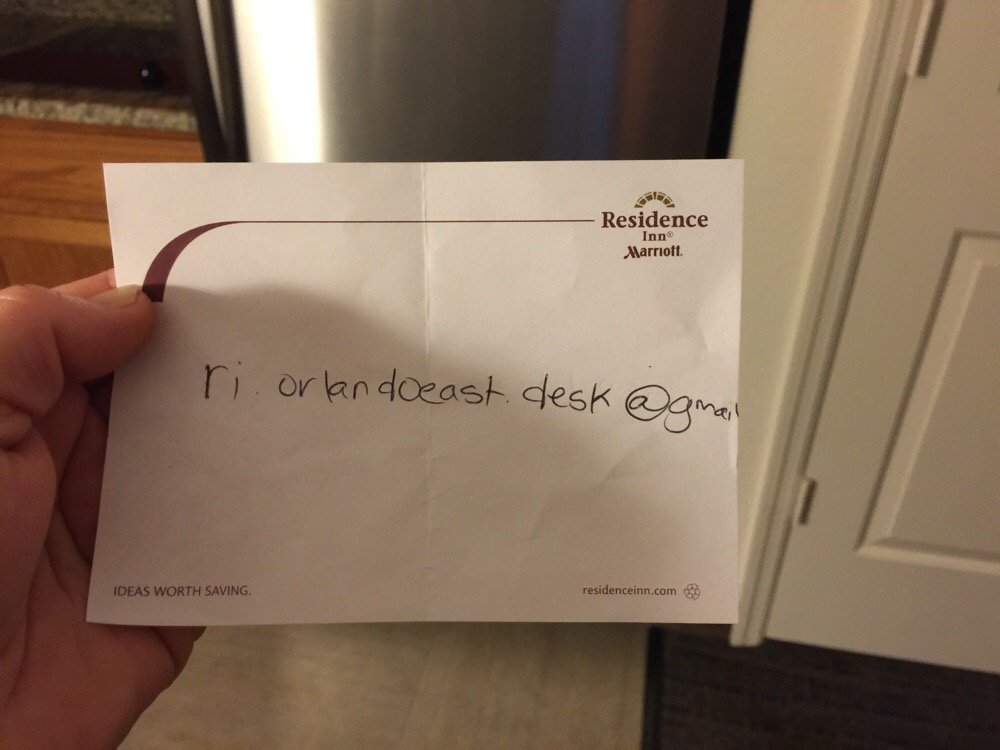 Residence
Inn®
Marriott.
ri.orlandoeast.desk@gmail
IDEAS WORTH SAVING.
residenceinn.com